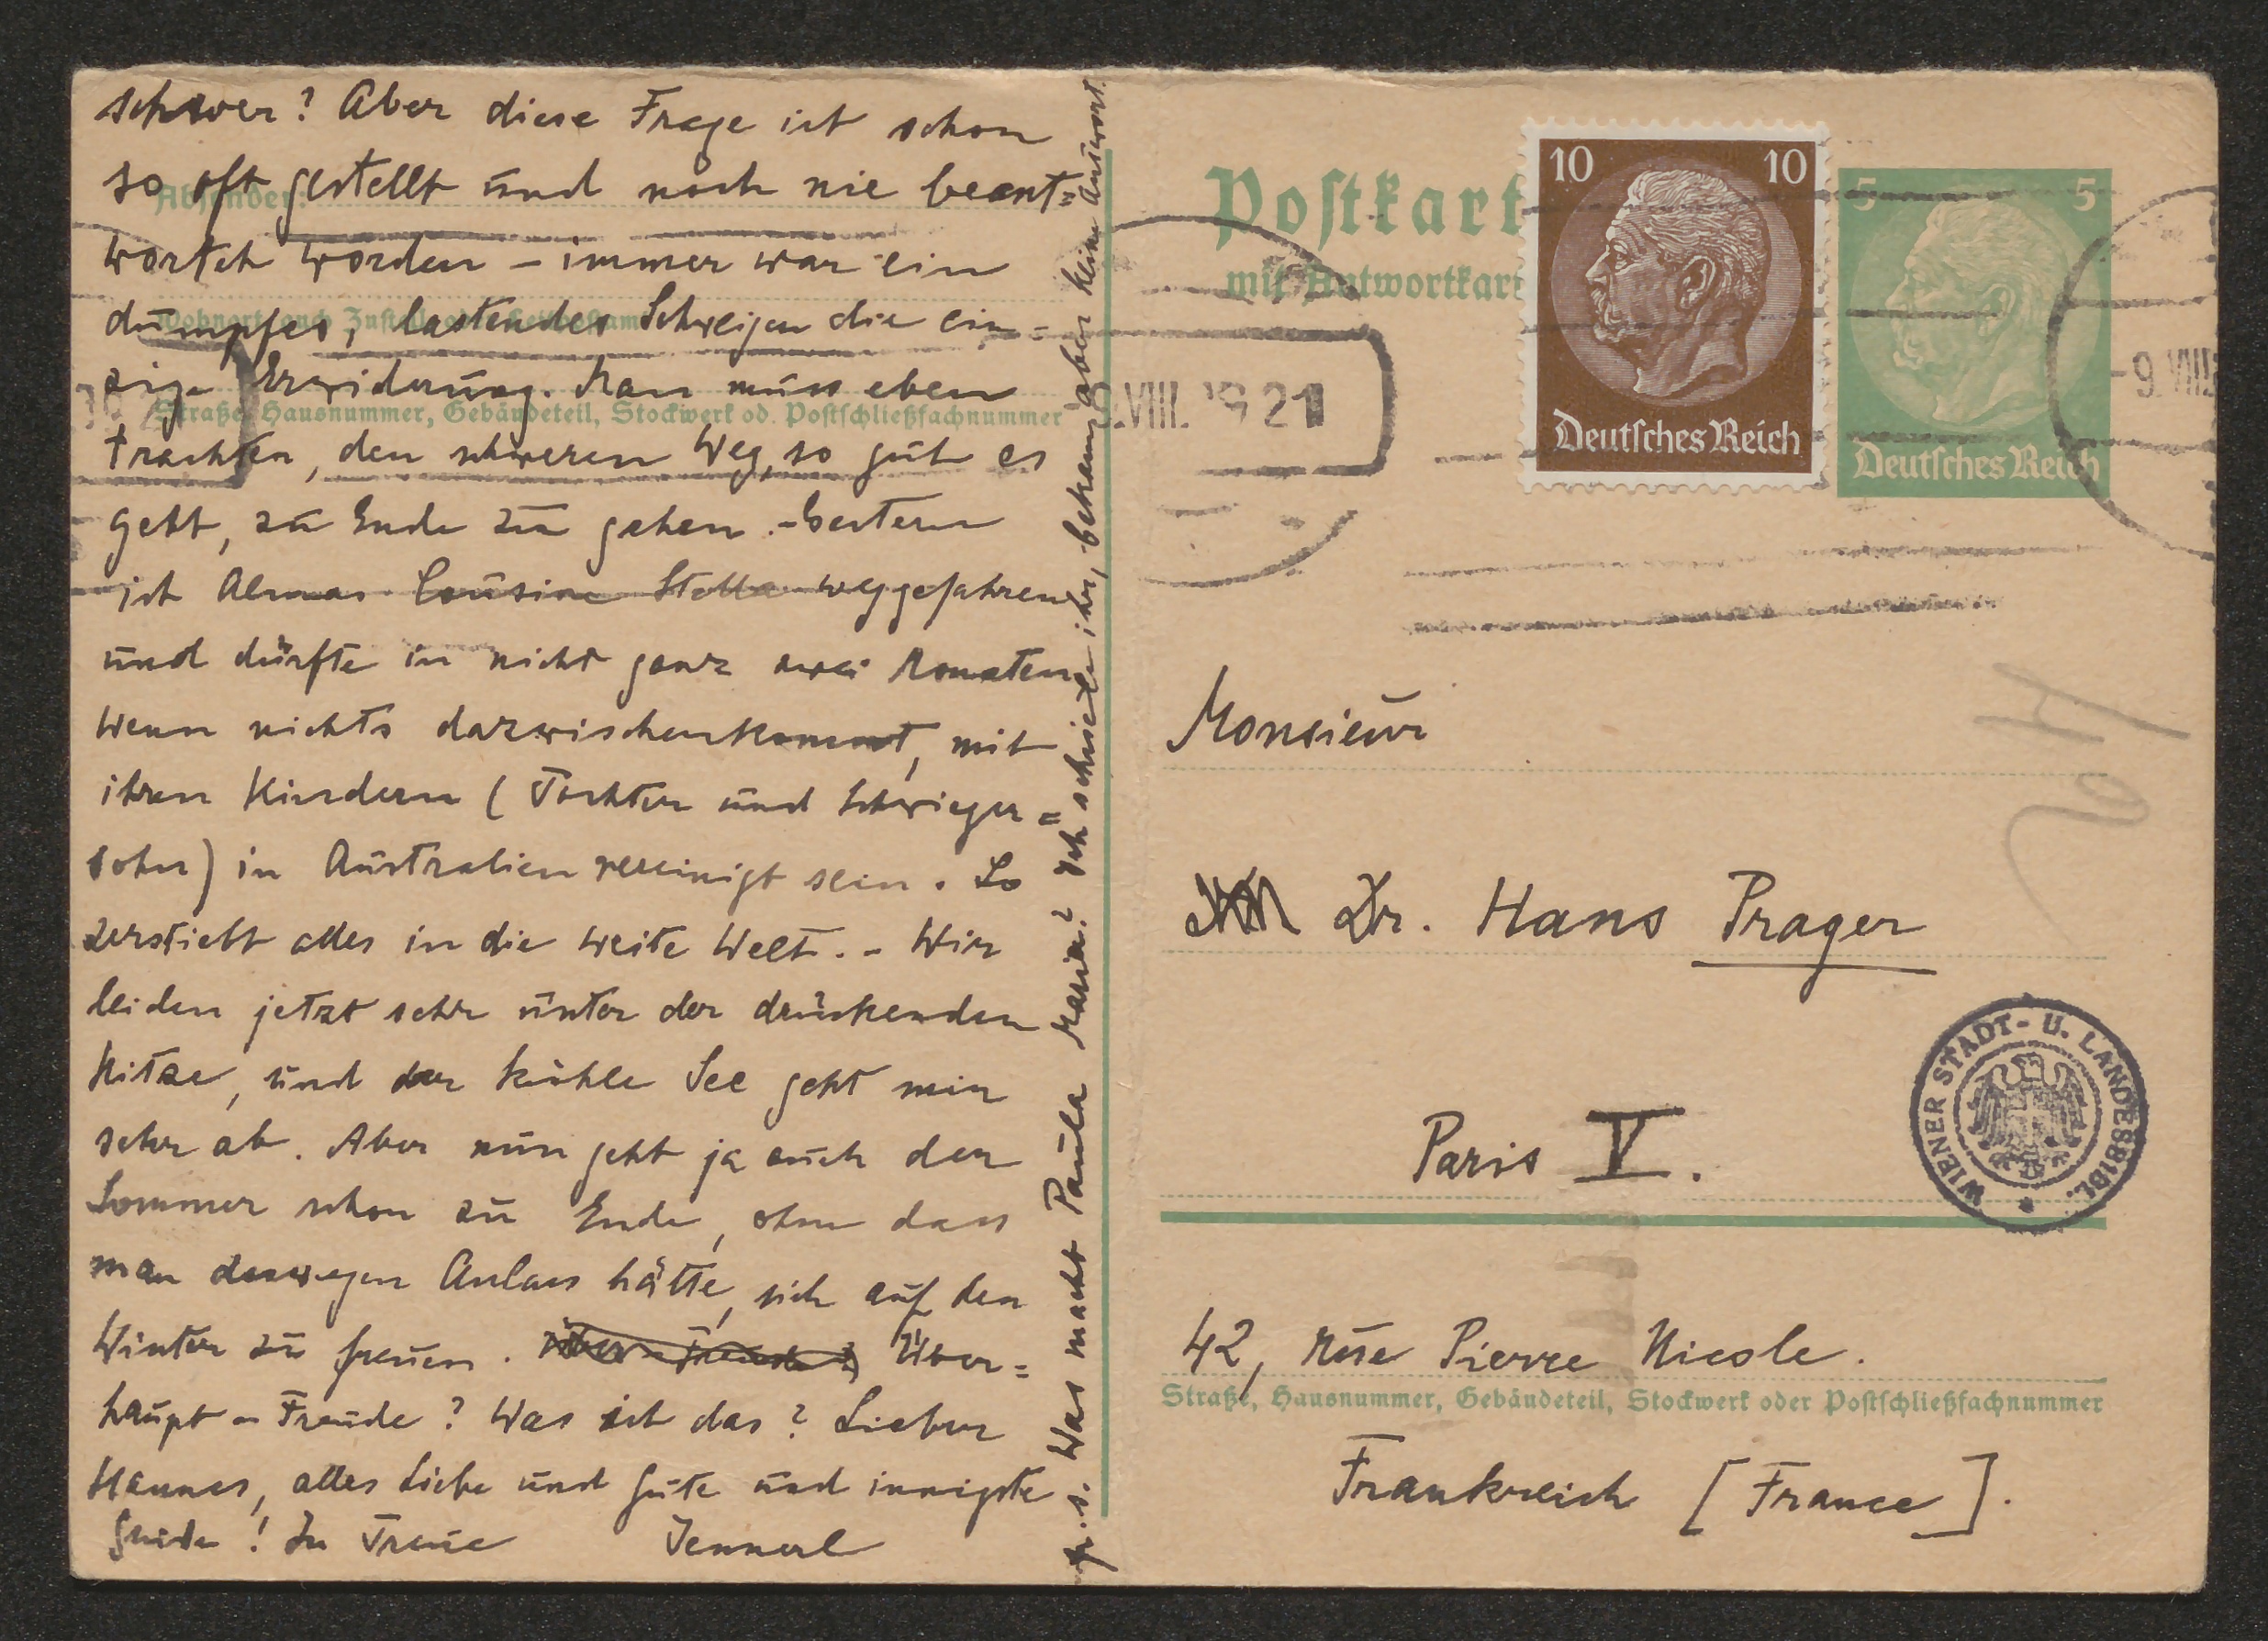 schwer? Aber diese Frage ist schon
so oft gestellt und noch nie beant=
wortet worden – immer war ein
dumpfes, lastendes Schweigen die ein=
zige Erwiderung. Man muss eben
trachten, den schweren Weg, so gut es
geht, zu Ende zu gehen. – Gestern
ist Almas Cousine Stella weggefahren
und dürfte in nicht ganz zwei Monaten,
wenn nichts dazwischenkommt, mit
ihren Kindern (Tochter und Schwieger=
sohn) in Australien vereinigt sein. So
zerstiebt alles in die weite Welt. – Wir
leiden jetzt sehr unter der drückenden
Hitze, und der kühle See geht mir
sehr ab. Aber nun geht ja auch der
Sommer schon zu Ende, ohne dass
man deswegen Anlass hätte, sich auf den
Winter zu freuen. Über=
haupt – Freude? Was ist das? Lieber
Hannes, alles Liebe und Gute und innigste
Grüße! In Treue Jennerl
p.s. Was macht Paula Maria? Ich schrieb ihr, bekam aber keine Antwort.
Absender:
Wohnort, auch Zustell- oder Leitpostamt
Straße, Hausnummer, Gebäudeteil, Stockwerk od. Postschließfachnummer
Postkart
mit Antwortkart
10 10
Deutsches Reich
5 5
Deutsches Reich
9.VIII. 19 21
-9.VIII
Monsieur
Dr. Hans Prager
Paris V.
WIENER STADT- U. LANDESBIBL.
42, rue Pierre Nicole.
Straße, Hausnummer, Gebäudeteil, Stockwerk oder Postschließfachnummer
Frankreich [France].